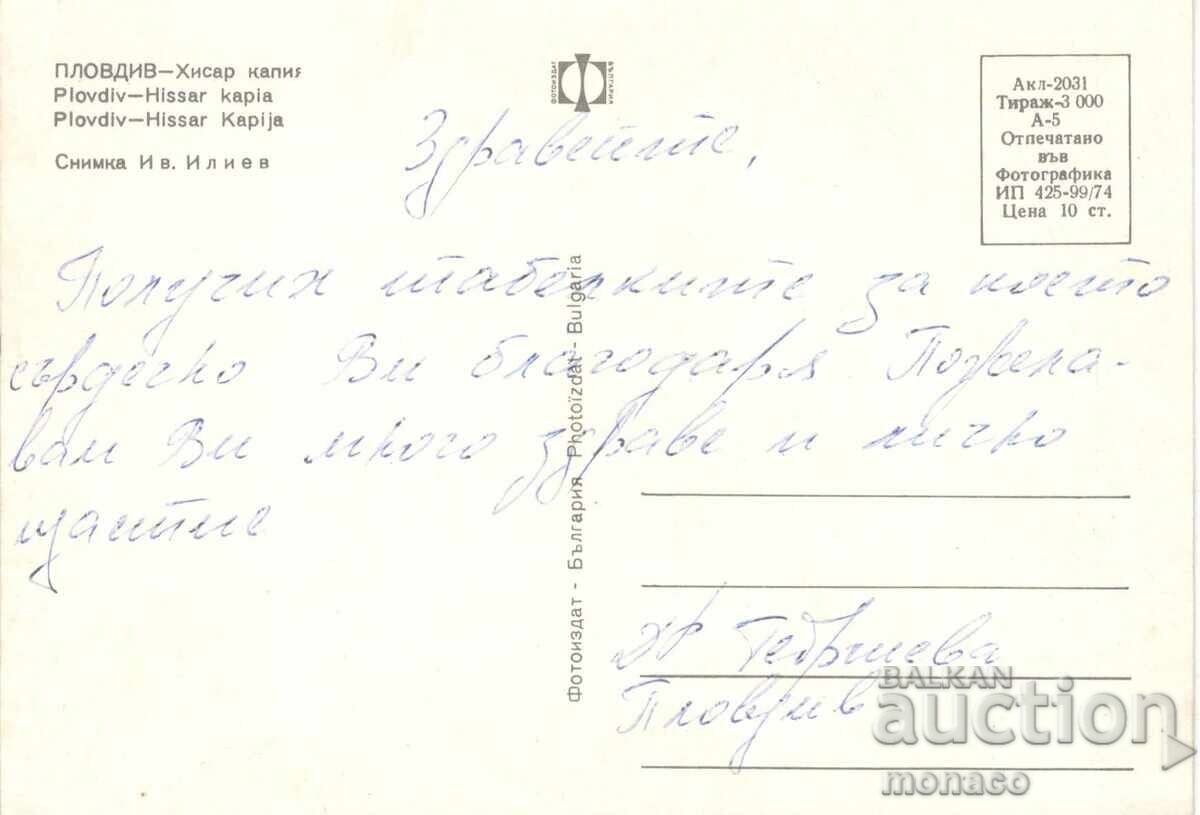 ПЛОВДИВ—Хисар капия
Plovdiv—Hissar kapia
Plovdiv—Hissar Kapija
Снимка Ив. Илиев
ФОТОИЗДАТ
БЪЛГАРИЯ
Акл-2031
Тираж-3 000
А-5
Отпечатано
във
Фотографика
ИП 425-99/74
Цена 10 ст.
Здравейте,
Получих табелките за което
сърдечно Ви благодаря Пожела-
вам Ви много здраве и лично
щастие
Фотоиздат - България Photoïzdat - Bulgaria
Др Георгиева
Пловдив
BALKAN
auction
monaco